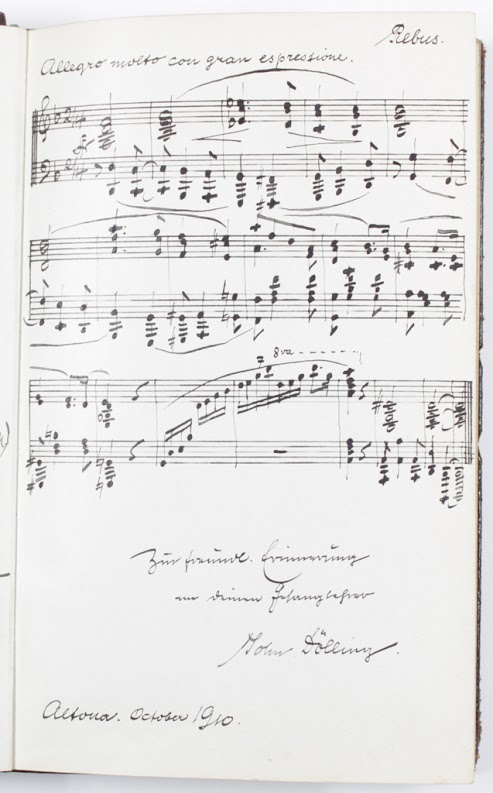 Rebus.
Allegro molto con gran espressione.
8va
Zur freundl. Erinnerung
an deinen Gesanglehrer
John Dölling.
Altona. October 1910.